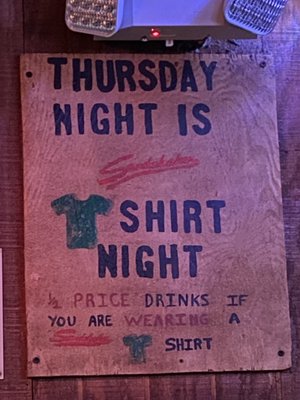 THURSDAY
NIGHT IS
Studebaker
SHIRT
NIGHT
½ PRICE DRINKS IF
YOU ARE WEARING A
Studebaker SHIRT